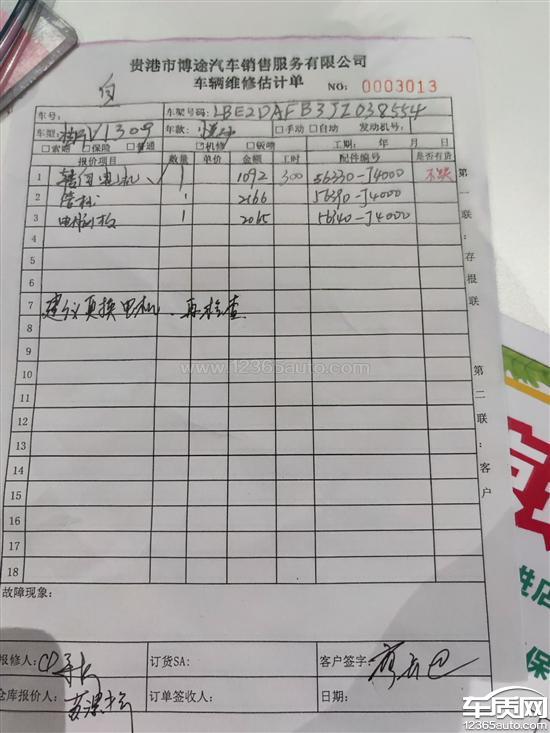 贵港市博途汽车销售服务有限公司
车辆维修估计单 NO: 0003013
白
车号: 车架号码: LBE2DAFB3JZ038554
车型: 1309 车款: 手动 自动 发动机号:
索赔 保险 普通 机修 钣喷 工期: 年 月 日
报价项目 数量 单价 金额 工时 配件编号 是否有货
1 转向电机 1 1092 300 56330-J4000
2 管柱 1 2166 56390-J4000
3 电脑板 1 2065 56340-J4000
4
5
6
7 建议更换电机、再检查
8
9
10
11
12
13
14
15
16
17
18
第一联:存根联
第二联:客户
故障现象:
报修人: 订货SA: 客户签字:
仓库报价人: 订单签收人: 日期:
www.12365auto.com
姓店
保
车质网
12365auto.com